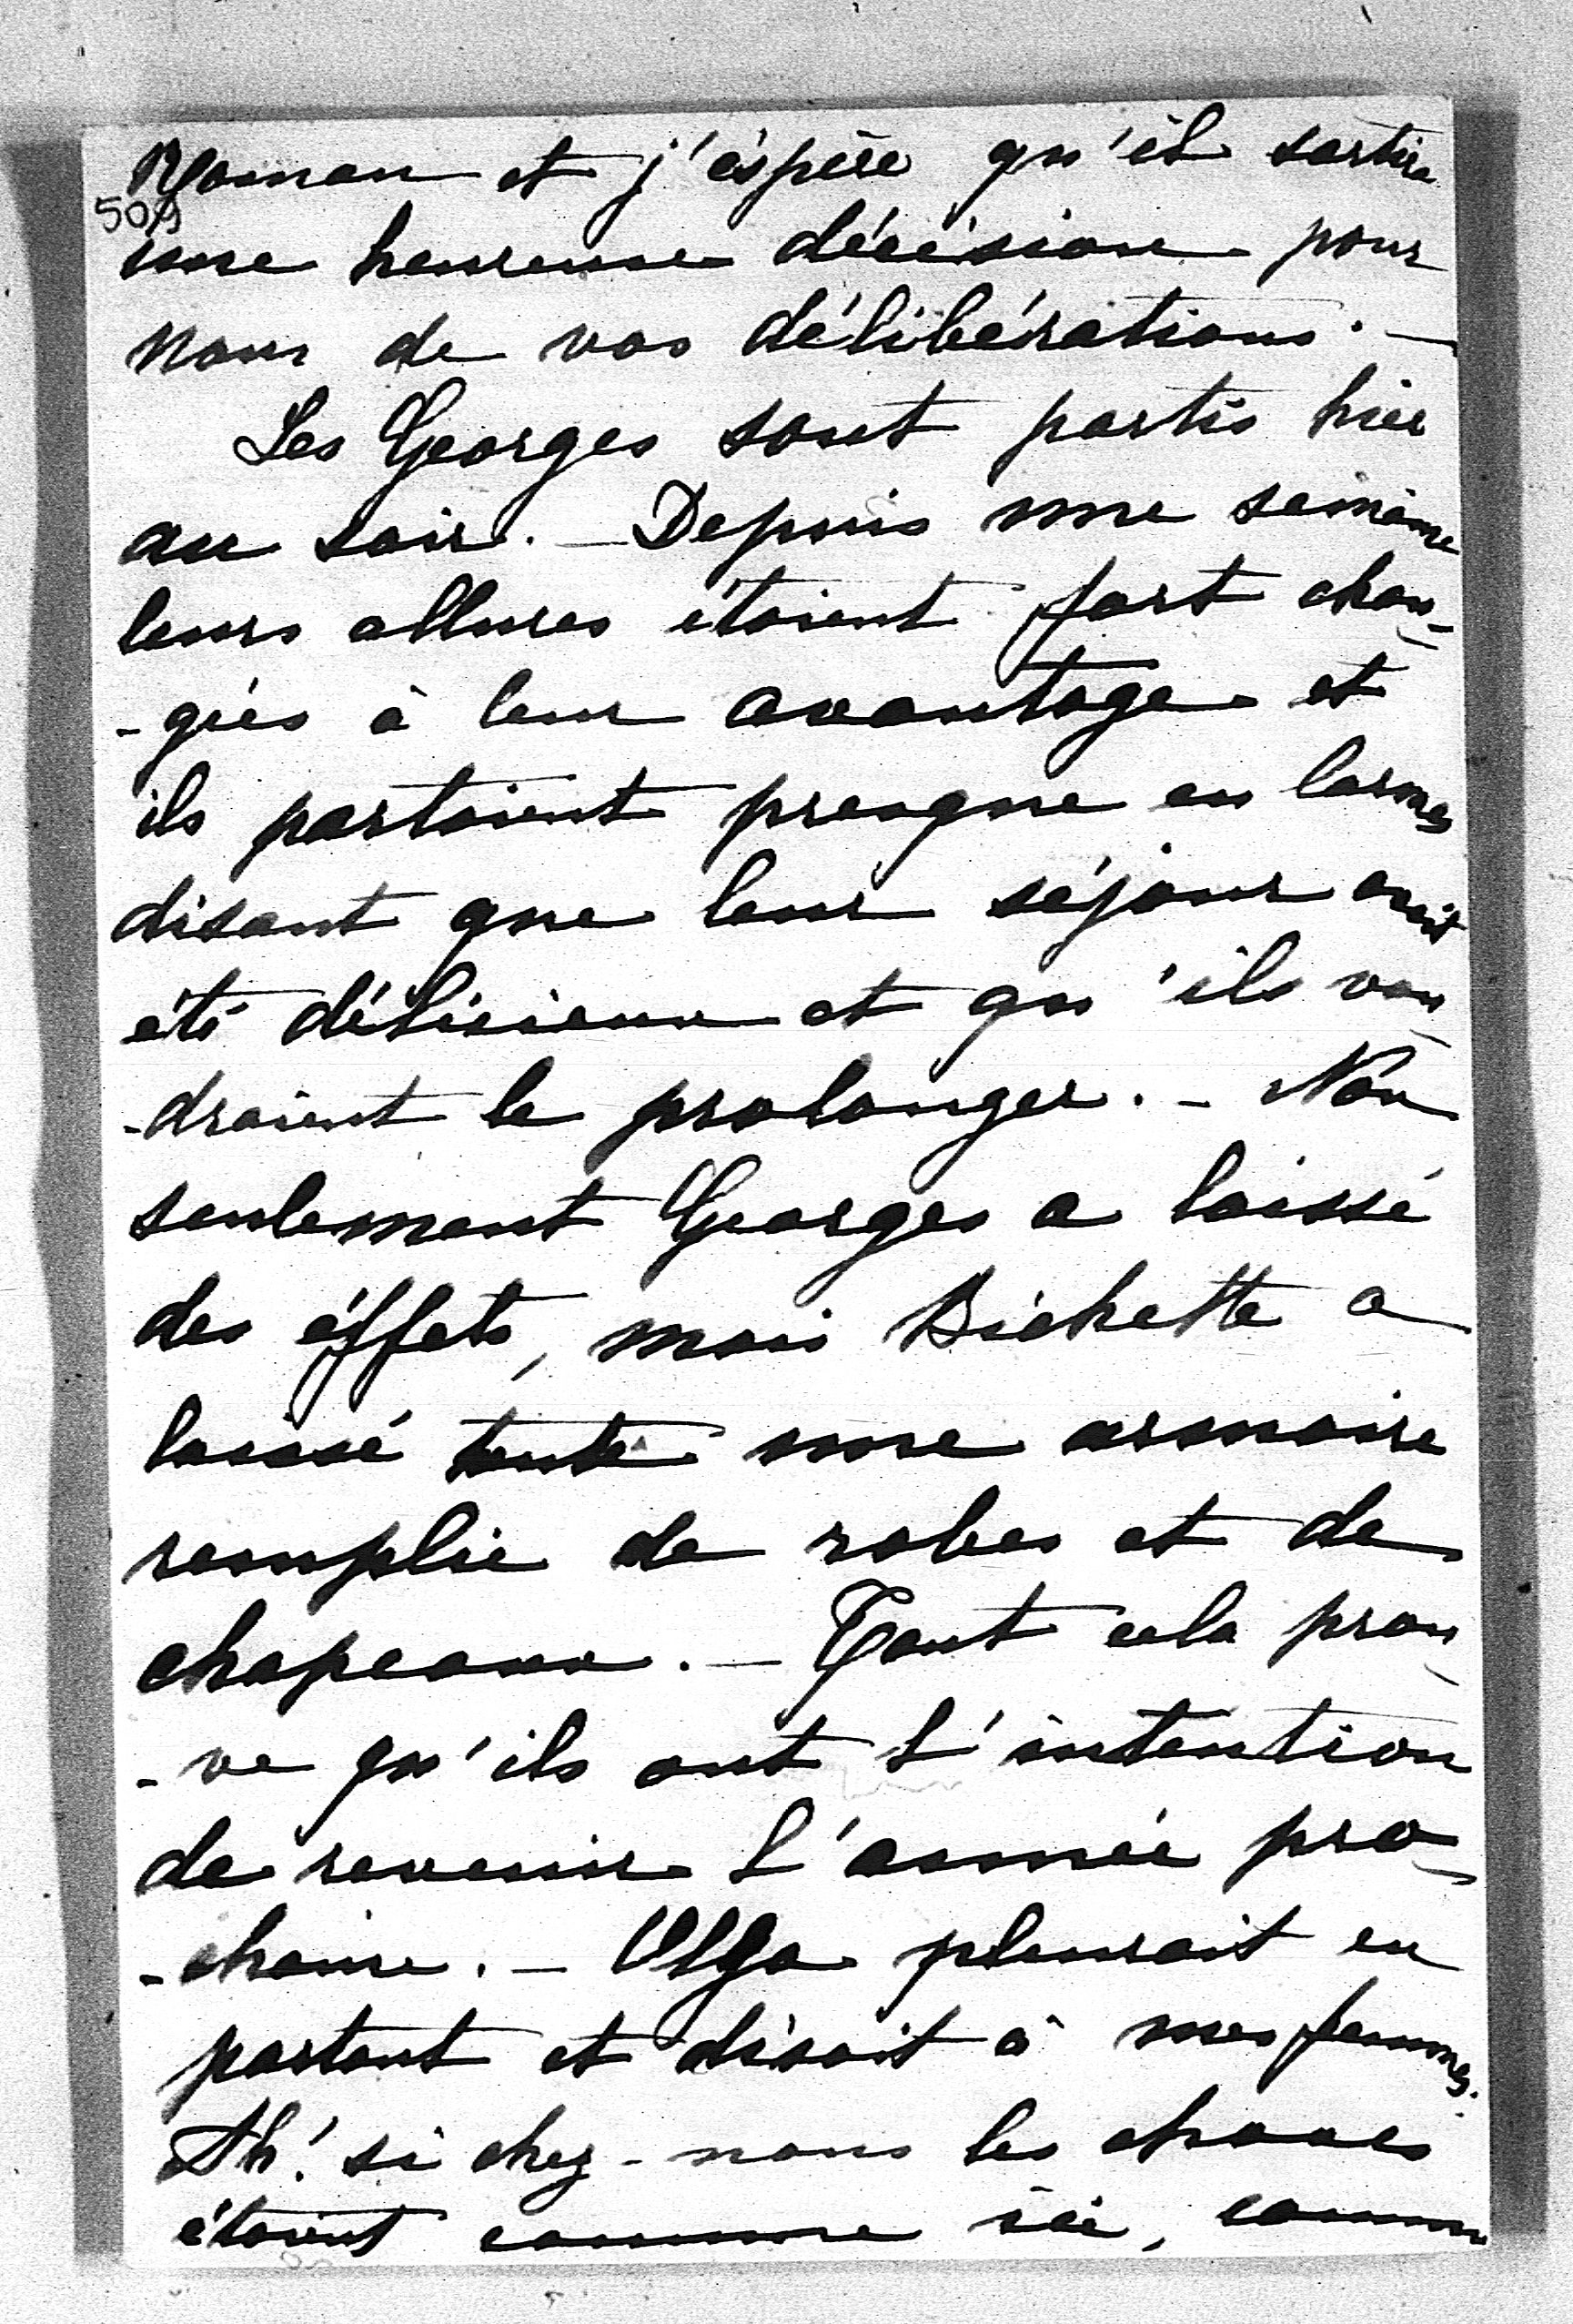 Roman et j'éspère qu'il sortira
509
une heureuse décision pour
nous de vos délibérations. —
Les Georges sont partis hier
au soir. — Depuis une semaine
leurs allures étaient fort chan-
-gées à leur avantage et
ils partaient presque en larmes
disant que leur séjour avait
été délicieux et qu'ils vou-
-draient le prolonger. — Non
seulement Georges a laissé
des éffets, mais Bichette a
laissé toute une armoire
remplie de robes et de
chapeaux. — Tout cela prou-
-ve qu'ils ont l'intention
de revenir l'année pro-
-chaine. — Olga pleurait en
partant et disait à mes femmes.
Ah! si chez-nous les choses
étaient comme ici, comme